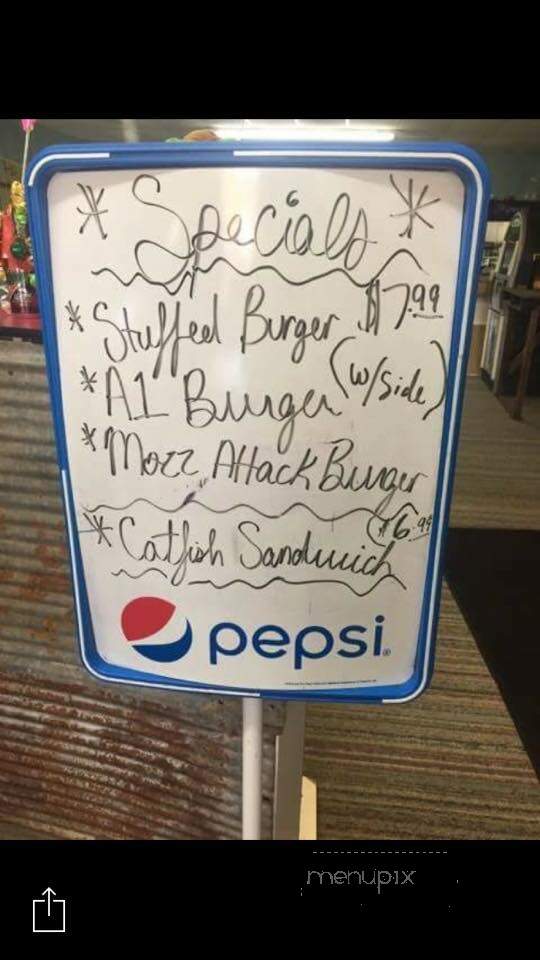 * Specials *
* Stuffed Burger $7.99
* A1 Burger (w/side)
* Mozz Attack Burger
* Catfish Sandwich $6.99
pepsi
menupix